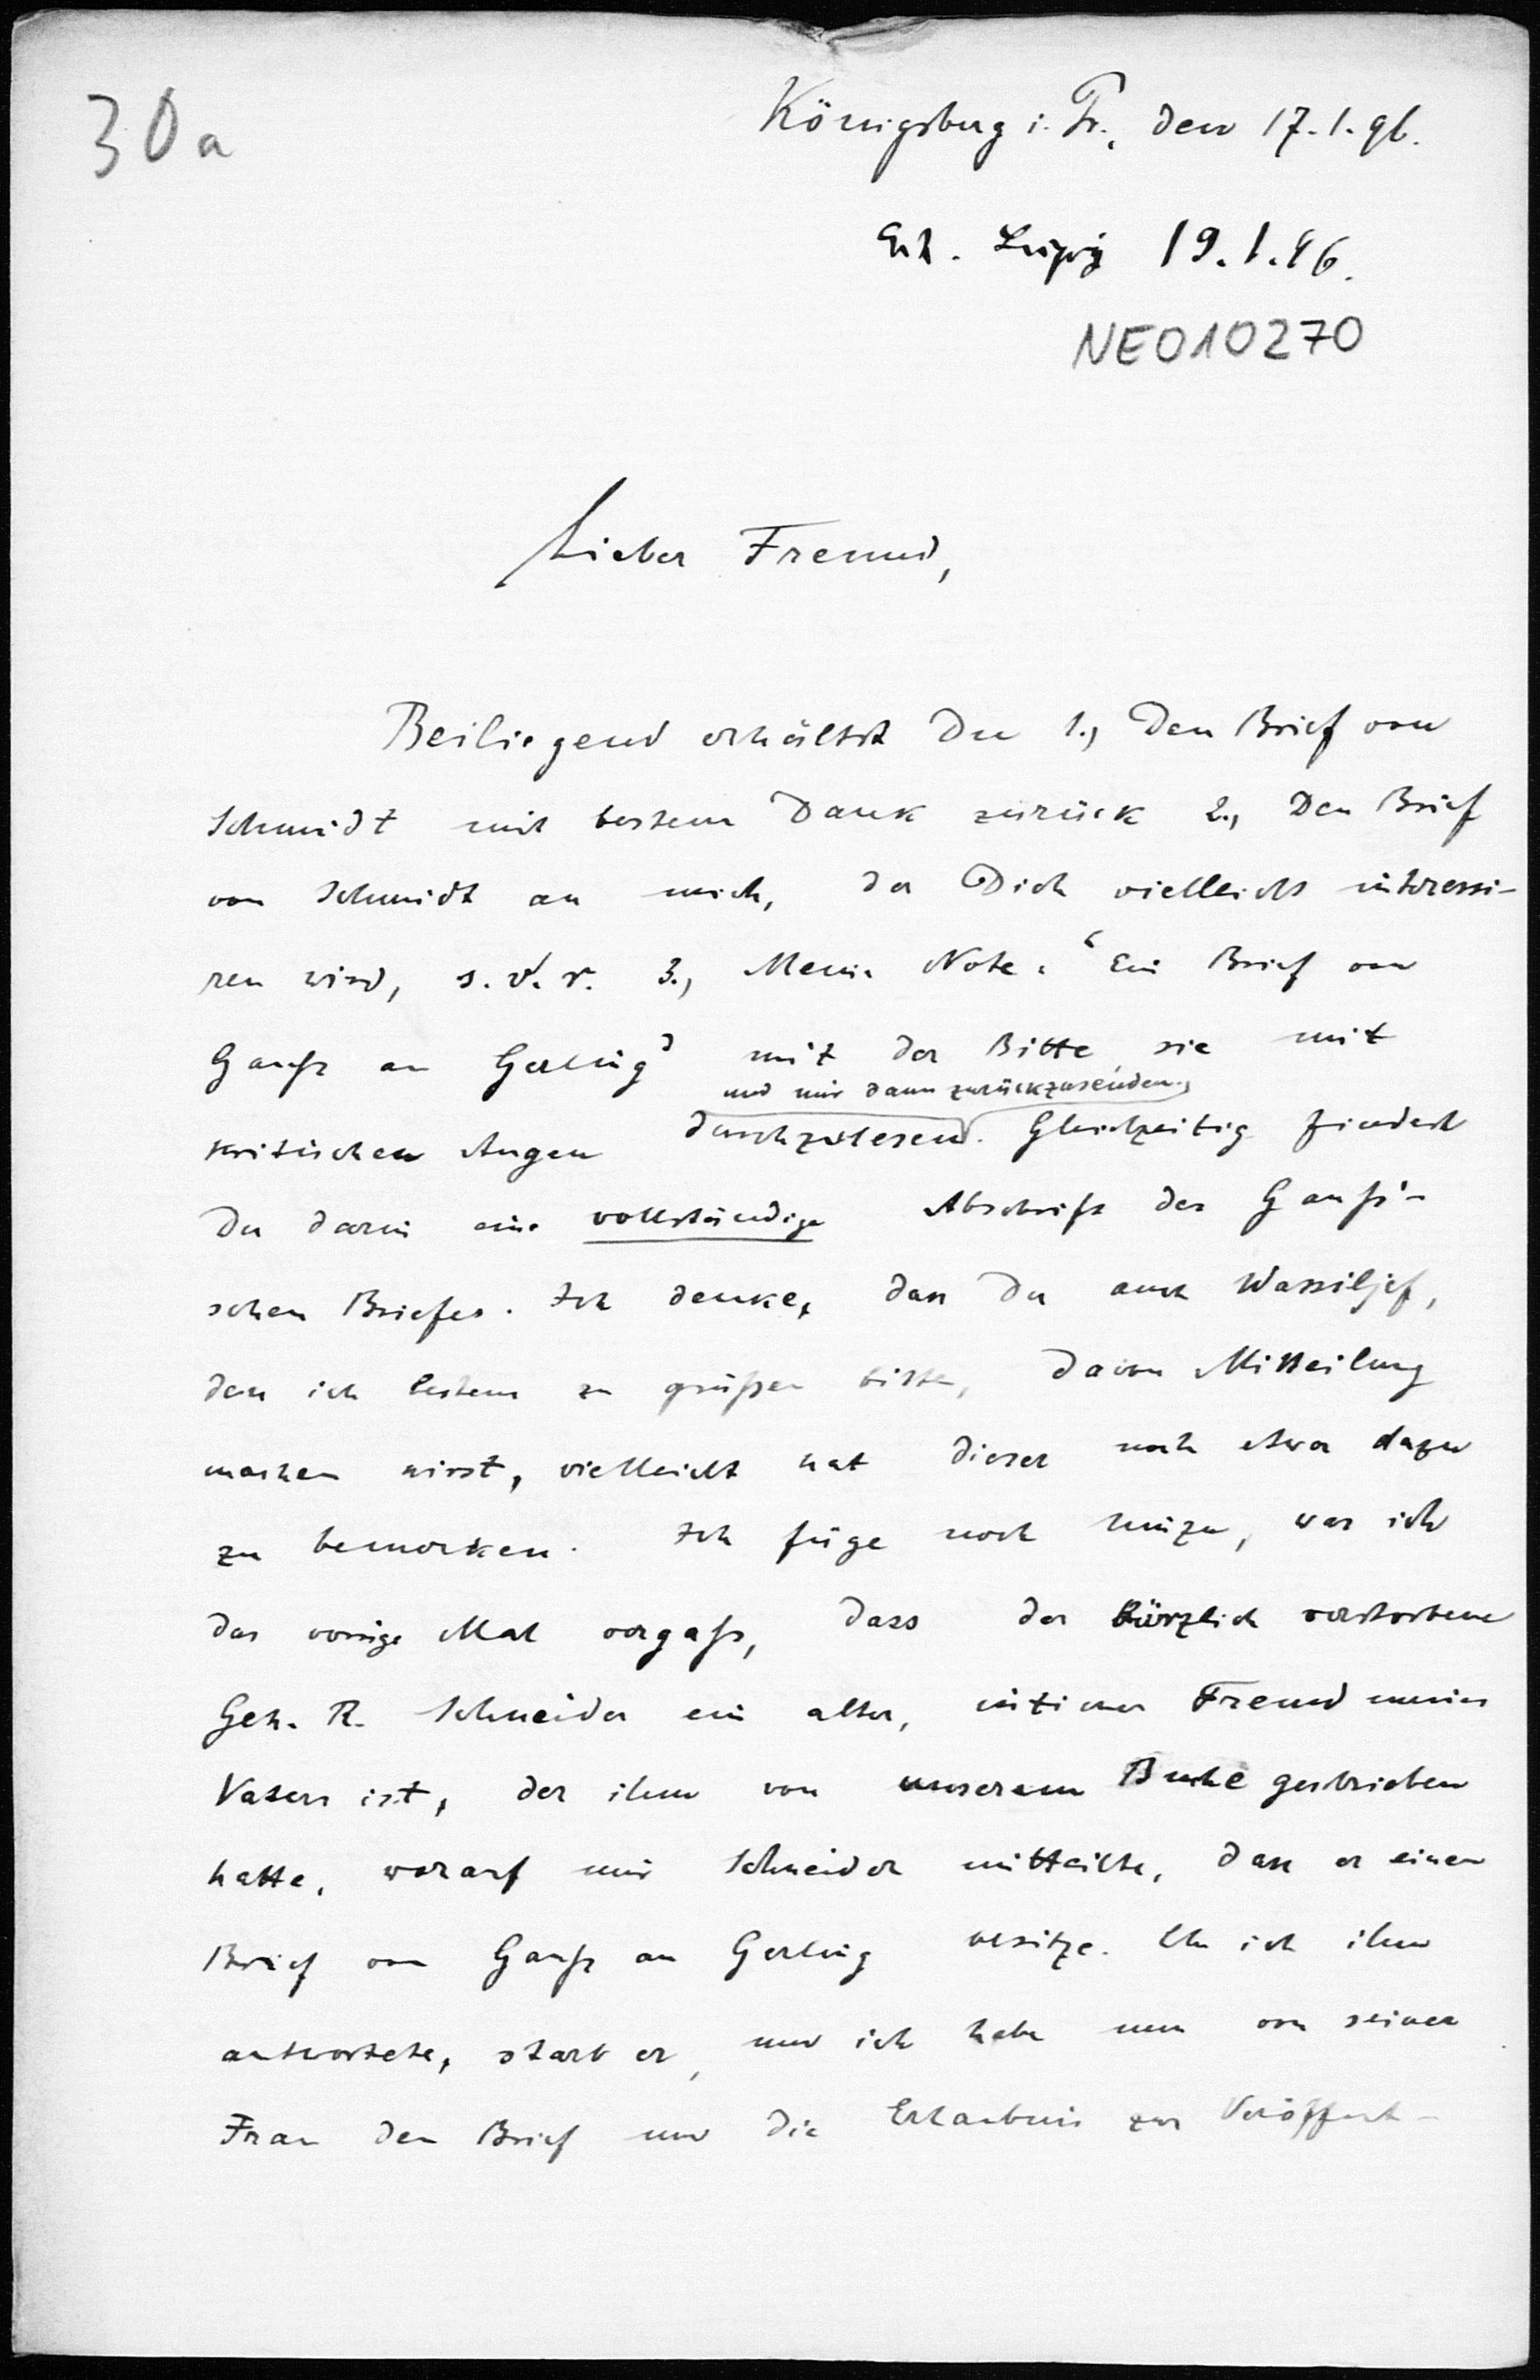 30a
Königsberg i. Pr., den 17.1.96.
Erh. Leipzig 19.1.96.
NE010270
Lieber Freund,
Beiliegend erhältst Du 1., Den Brief von
Schmidt mit bestem Dank zurück 2., Den Brief
von Schmidt an mich, der Dich vielleicht interessi-
ren wird, s. v. r. 3., Meine Note: "Ein Brief von
Gauß an Gerling" mit der Bitte, sie mit
und mir dann zurückzusenden.
kritischen Augen durchzulesen. Gleichzeitig findest
Du darin eine vollständige Abschrift des Gauß'-
schen Briefes. Ich denke, dass Du auch Wassiljef,
den ich bestens zu grüßen bitte, davon Mitteilung
machen wirst, vielleicht hat dieser noch etwas dazu
zu bemerken. Ich füge noch hinzu, was ich
das vorige Mal vergaß, dass der kürzlich verstorbene
Geh. R. Schneider ein alter, intimer Freund meines
Vaters ist, der ihm von unserem Buche geschrieben
hatte, worauf mir Schneider mitteilte, dass er einen
Brief von Gauß an Gerling besitze. Ehe ich ihm
antwortete, starb er, und ich habe nun von seiner
Frau den Brief und die Erlaubnis zur Veröffent-